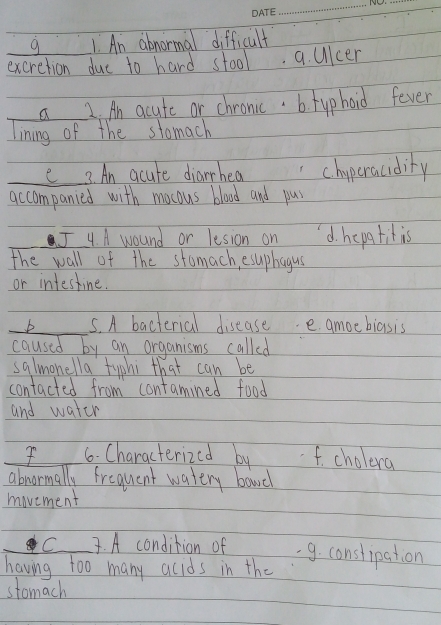 DATE NO.
g 1. An abnormal difficult
excretion due to hard stool . a. Ulcer
a 2. An acute or chronic . b. typhoid fever
lining of the stomach
e 3. An acute diarrhea c. hyperacidity
accompanied with mocous blood and pus
J 4. A wound or lesion on d. hepatitis
the wall of the stomach, esuphagus
or intestine.
b 5. A bacterial disease - e. amoebiasis
caused by an organisms called
salmonella typhi that can be
contacted from contamined food
and water
f 6. Characterized by - f. cholera
abnormally frequent watery bowel
movement
C 7. A condition of - g. constipation
having too many acids in the
stomach